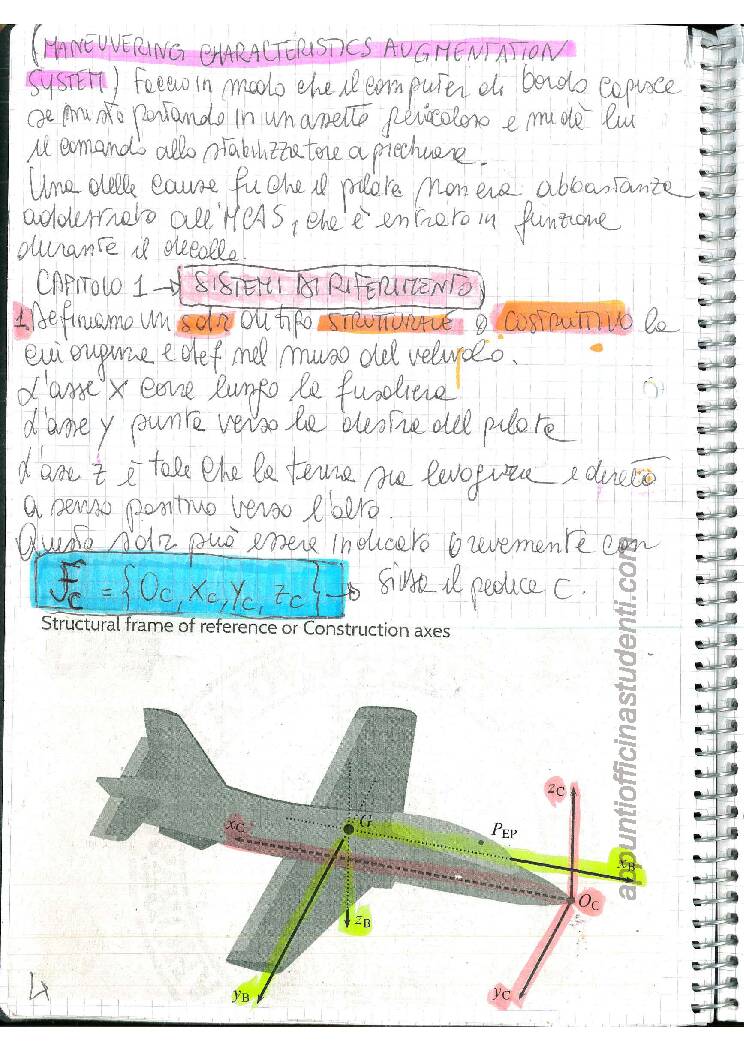 (MANEUVERING CHARACTERISTICS AUGMENTATION
SYSTEM) Faccio in modo che il computer di bordo capisce
se mi sto portando in un assetto pericoloso e mi dà lui
il comando allo stabilizzatore a picchiare.
Una delle cause fu che il pilota non era abbastanza
addestrato all'MCAS, che è entrato in funzione
durante il decollo.
CAPITOLO 1 → SISTEMI DI RIFERIMENTO
1. Definiamo un sdr di tipo STRUTTURALE o COSTRUTTIVO la
cui origine è def nel muso del velivolo.
L'asse x corre lungo la fusoliera
L'asse y punta verso la destra del pilota
L'asse z è tale che la terna sia levogira e diretto
a senso positivo verso l'alto.
Questo sdr può essere indicato brevemente con
Fc = {Oc, xc, yc, zc} → si usa il pedice C.
Structural frame of reference or Construction axes
zC
xC
G
PEP
xB
OC
zB
yB
yC
4
appuntiofficinastudenti.com